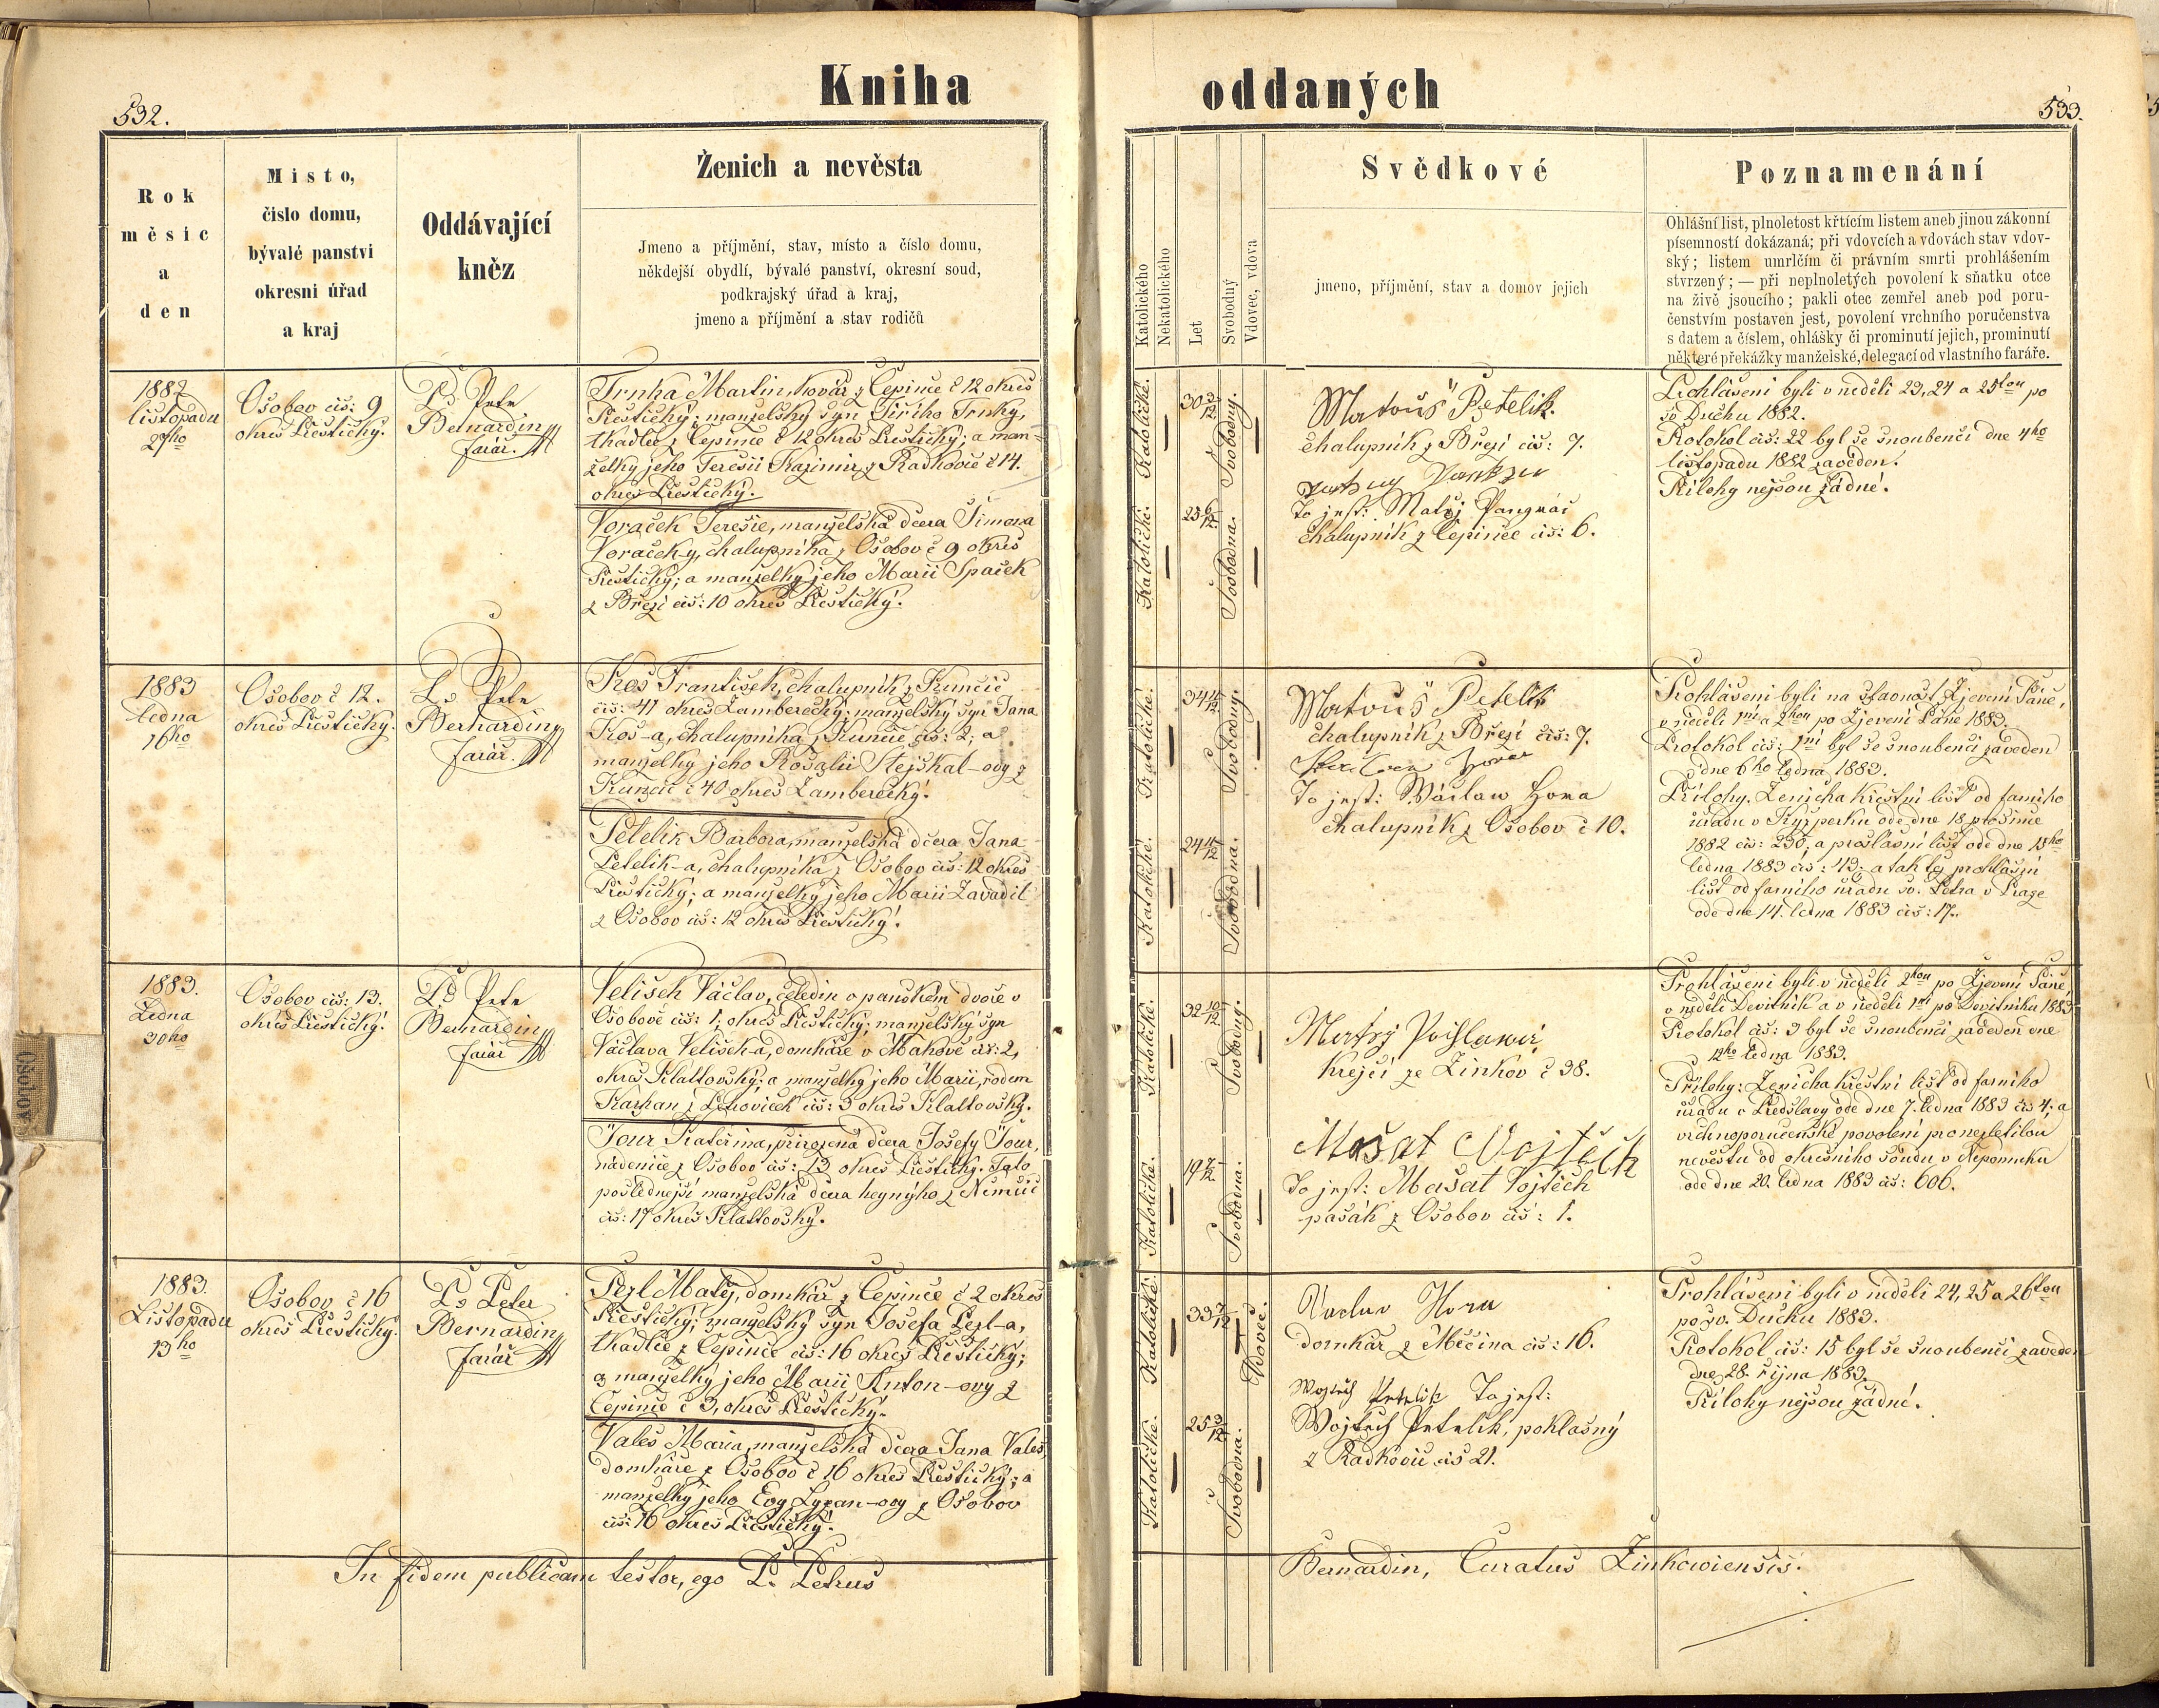 Kniha oddaných
532.
533.
Rok
měsíc
a
den
Místo,
číslo domu,
bývalé panství
okresní úřad
a kraj
Oddávající
kněz
Ženich a nevěsta
Jmeno a příjmění, stav, místo a číslo domu,
někdejší obydlí, bývalé panství, okresní soud,
podkrajský úřad a kraj,
jmeno a příjmění a stav rodičů
Katolického
Nekatolického
Let
Svobodný
Vdovec, vdova
Svědkové
jmeno, příjmění, stav a domov jejich
Poznamenání
Ohlášní list, plnoletost křtícím listem aneb jinou zákonní
písemností dokázaná; při vdovcích a vdovách stav vdov-
ský; listem umrlčím či právním smrti prohlášením
stvrzený; — při neplnoletých povolení k sňatku otce
na živě jsoucího; pakli otec zemřel aneb pod poru-
čenstvím postaven jest, povolení vrchního poručenstva
s datem a číslem, ohlášky či prominutí jejich, prominutí
některé překážky manželské, delegací od vlastního faráře.
1882
listopadu
27ho
Osobov čis: 9
okres Přestický.
P. Petr
Bernardin
farář.
Trnka Martin, kovář z Čepince č 12 okres
Přestický; manželský syn Jiřího Trnky,
tkadlce z Čepince č 12 okres Přestický; a man-
želky jeho Teresii Kazimir z Radkovic č 14.
okres Přestický.
Voraček Teresie, manželská dcera Šimona
Voračeky, chalupníka z Osobov č 9 okres
Přestický; a manželky jeho Marii Spaček
z Březí čis: 10 okres Přestický.
Katolické.
30 3/12
Svobodný.
Katolické.
23 6/12
Svobodna.
Matouš Petelik.
chalupník z Březí čis: 7.
To jest: Matěj Pangrác
chalupník z Čepince čis: 6.
Prohlášeni byli v neděli 23, 24 a 25tou po
sv. Duchu 1882.
Protokol čis: 22 byl se snoubenci dne 4ho
listopadu 1882 zaveden.
Přílohy nejsou žádné.
1883
ledna
16ho
Osobov č 12.
okres Přestický.
P. Petr
Bernardin
farář.
Kos František, chalupník z Kunčic
čis: 47 okres Žamberecký; manželský syn Jana
Kos-a, chalupníka z Kunčic čis: 2; a
manželky jeho Rosalii Stejskal-ovy z
Kunčic č 40 okres Žamberecký.
Petelik Barbora, manželská dcera Jana
Petelik-a, chalupníka z Osobov čis: 12 okres
Přestický; a manželky jeho Marii Zavadil
z Osobov čis: 12 okres Přestický.
Katolické.
34 4/12
Svobodný.
Katolické.
24 4/12
Svobodna.
Matouš Petelik
chalupník z Březí čis: 7.
To jest: Wáclaw Hora
chalupník z Osobov č 10.
Prohlášeni byli na slavnost Zjevení Páně,
v neděli 1ní a 2hou po Zjevení Páně 1883.
Protokol čis: 1ní byl se snoubenci zaveden
dne 6ho ledna 1883.
Přílohy. Ženicha křestní list od farního
úřadu v Kyšperku ode dne 18. prosince
1882 čis: 230; a prohlásní list ode dne 15ho
ledna 1883 čis: 43; a tak též prohlásní
list od farního úřadu sv. Petra v Praze
ode dne 14. ledna 1883 čis: 17.
1883.
Ledna
30ho
Osobov čis: 13.
okres Přestický.
P. Petr
Bernardin
farář
Velisek Václav, čeledin v panském dvoře v
Osobově čis: 1, okres Přestický; manželský syn
Václava Velisek-a, domkáře v Makově čis: 2,
okres Klattovský; a manželky jeho Marii, rodem
čis: 3 okres Klattovský.
Tour Kateřina, přirozená dcera Josefy Tour,
nádenice z Osobov čis: 13 okres Přestický. Tato
poslednejsí manželská dcera z Němčic
čis: 17 okres Klattovský.
Katolické.
32 10/12
Svobodný.
Katolické.
19 7/12
Svobodna.
Matěj
krejčí ze Žinkov č 38.
Mašat Vojtěch
To jest: Mašat Vojtěch
pasák z Osobov čis: 1.
Prohlášeni byli v neděli 2hou po Zjevení Páně,
v neděli Devítník a v neděli 1ní po Devítniku 1883
Protokol čis: 3 byl se snoubenci zaveden dne
12ho ledna 1883.
Přílohy: Ženicha křestní list od farního
úřadu v Předslavy ode dne 7. ledna 1883 čis 4; a
vrchnoporučenské povolení pro nezletilou
nevěstu od okresního soudu v Nepomuku
ode dne 20. ledna 1883 čis: 606.
1883.
Listopadu
13ho
Osobov č 16
okres Přestický.
P. Peter
Bernardin
farář
Pezl Matěj, domkář z Čepince č 2 okres
Přestický; manželský syn Josefa Pezl-a,
tkadlce z Čepince čis: 16 okres Přestický;
a manželky jeho Marii Anton-ovy z
Čepince č 3, okres Přestický.
Vales Maria, manželská dcera Jana Vales,
domkáře z Osobov č 16 okres Přestický; a
manželky jeho Evy Lyzan-ovy z Osobov
čis: 16 okres Přestický.
Katolické.
33 7/12
Vdovec.
Katolické.
25 3/12
Svobodna.
Václav Hora
domkář z Měčina čis: 16.
Wojtěch Petelik To jest:
Wojtěch Petelik, poklasný
z Radkovic čis 21.
Prohlášeni byli v neděli 24, 25 a 26tou
po sv. Duchu 1883.
Protokol čis: 15 byl se snoubenci zaveden
dne 28. října 1883.
Přílohy nejsou žádné.
In fidem publicam testor, ego P. Petrus
Bernardin, Curatus Zinkowiensis.
Osobov